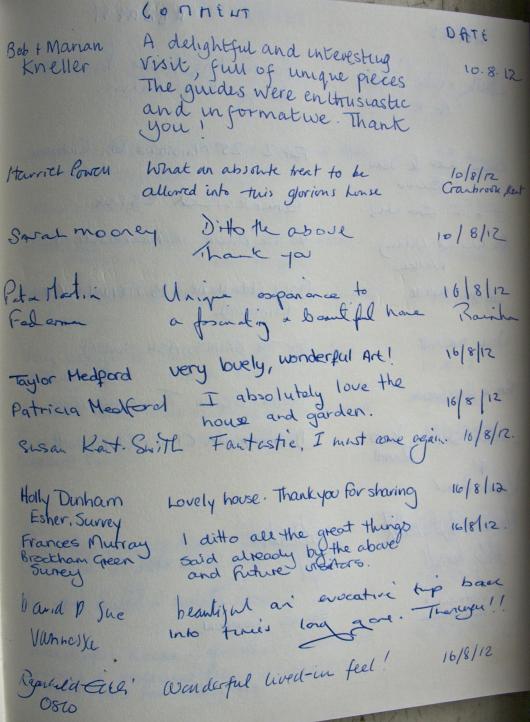 COMMENT DATE
Bob + Marian A delightful and interesting
Kneller visit, full of unique pieces 10.8.12
The guides were enthusiastic
and informative. Thank
you!
Harriet Powell What an absolute treat to be 10/8/12
allowed into this glorious house Cranbrook Kent
Sarah Mooney Ditto the above 10/8/12
Thank you
Martin Unique experience to 16/8/12
a & beautiful home
Taylor Medford very lovely, wonderful Art! 16/8/12
Patricia Medford I absolutely love the 16/8/12
house and garden.
Susan Smith Fantastic, I must come again. 16/8/12.
Holly Dunham Lovely house. Thankyou for sharing 16/8/12
Esher, Surrey
Frances Murray I ditto all the great things 16/8/12.
Brockham Green said already by the above
Surrey and future visitors.
David Sue beautiful an evocative trip back
into times long gone. Thankyou!!
Wonderful lived-in feel! 16/8/12